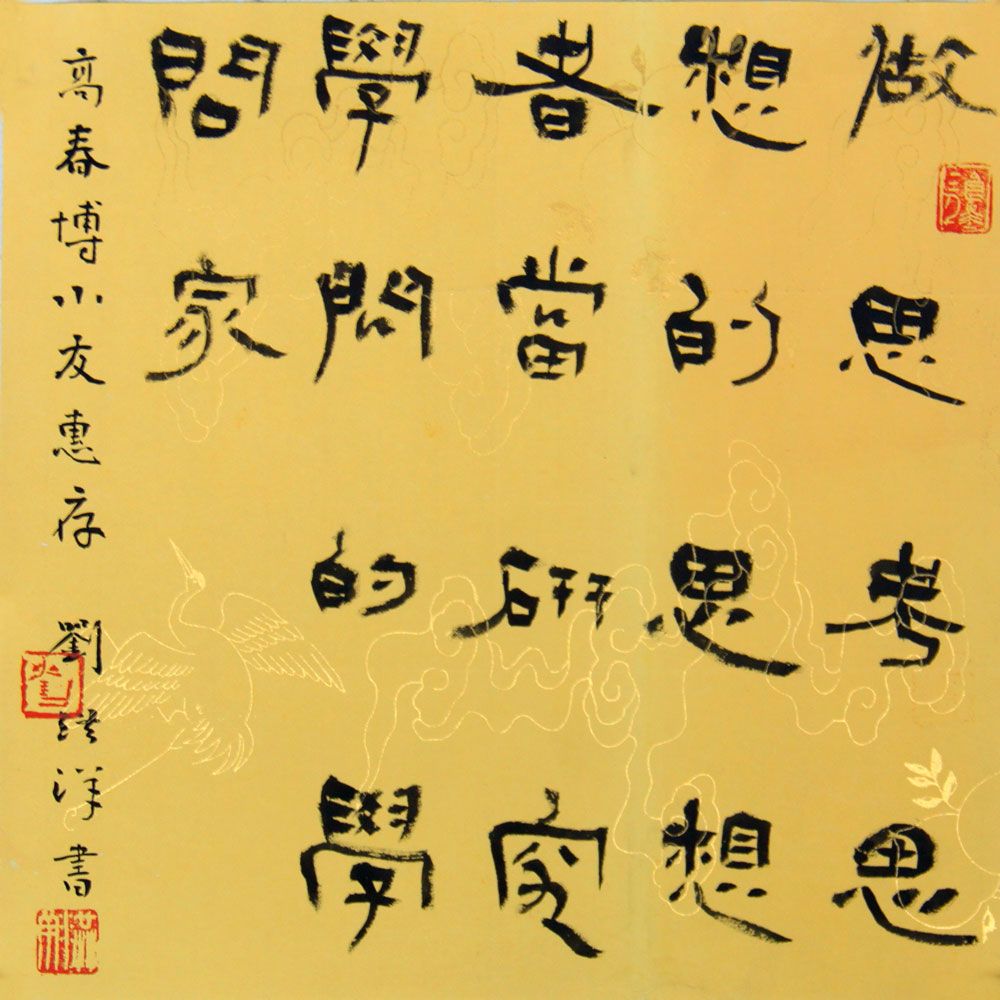 做思考思
想的思想
者當研究
學問的學
問家
高春博小友惠存 劉洪洋書